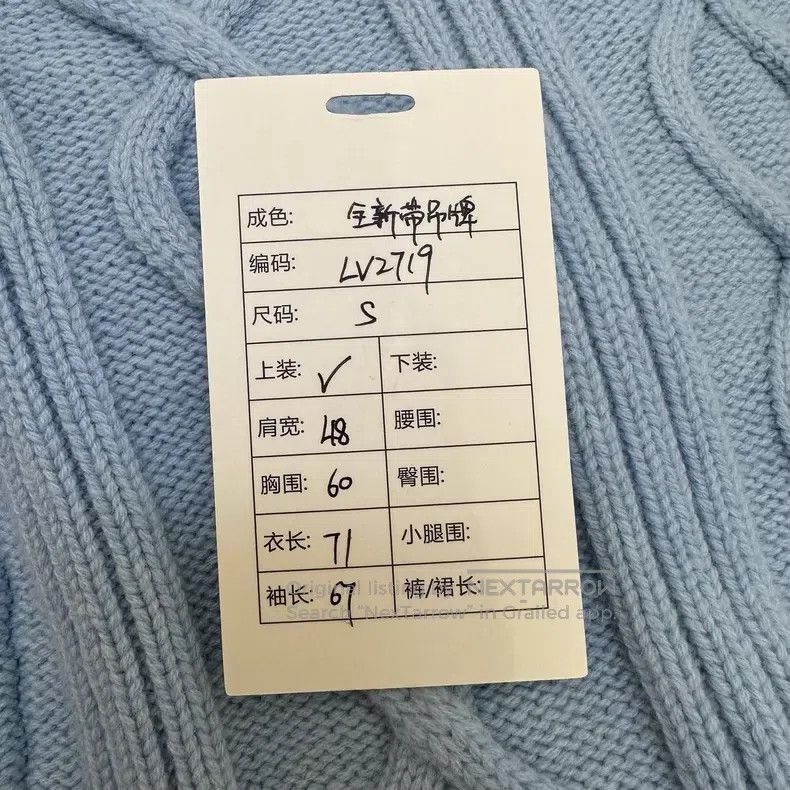 成色: 全新带吊牌
编码: LV2719
尺码: S
上装: ✓ 下装:
肩宽: 48 腰围:
胸围: 60 臀围:
衣长: 71 小腿围:
袖长: 67 裤/裙长:
Original listing NEXTARROW
Search "NexTarrow" in Grailed app